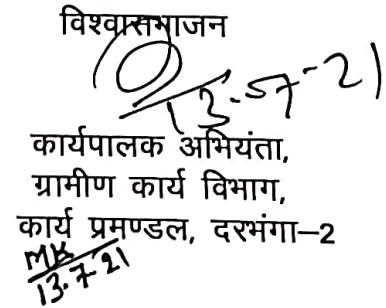 विश्वासभाजन
13-07-21
कार्यपालक अभियंता,
ग्रामीण कार्य विभाग,
कार्य प्रमण्डल, दरभंगा–2
MK
13.7.21